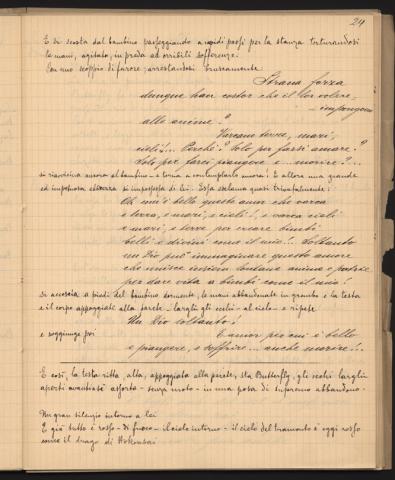 24
E si scosta dal bambino passeggiando a rapidi passi per la stanza torturandosi
le mani, agitata, in preda ad orribili sofferenze.
Con uno scoppio di furore; arrestandosi bruscamente:
Strana forza
dunque han costor che il lor volere
impongono
alle anime?
Varcano terre, mari,
cieli!... Perchè? Solo per farsi amare?
Solo per farci piangere e... morire?...
si riavvicina ancora al bambino - e torna a contemplarlo ancora! E allora una grande
ed improvvisa ebbrezza si impossessa di lei. Essa esclama quasi trionfalmente:
Oh com'è bello questo amor che varca
e terra, e mari, e cieli!.. e varca cieli
e mari, e terre per creare bimbi
belli e divini come il mio!. Soltanto
un Dio può immaginare questo amore
che unisce insiem lontane anime e patrie
per dare vita a bimbi come il mio!
si accascia a piedi del bambino dormente; le mani abbandonate in grembo e la testa
e il corpo appoggiati alla parete - larghi gli occhi - al cielo - e ripete
Un Dio soltanto!
e soggiunge poi
E amor per cui è bello
e piangere, e soffrire... anche morire!..
E così, la testa ritta, alta, appoggiata alla parete, sta Butterfly, gli occhi larghi
aperti avanti a sè assorta - senza moto - in una posa di supremo abbandono.
Un gran silenzio intorno a lei
E già tutto è rosso - di fuoco - il cielo intorno - il cielo del tramonto è oggi rosso
come il drago di Hokousai